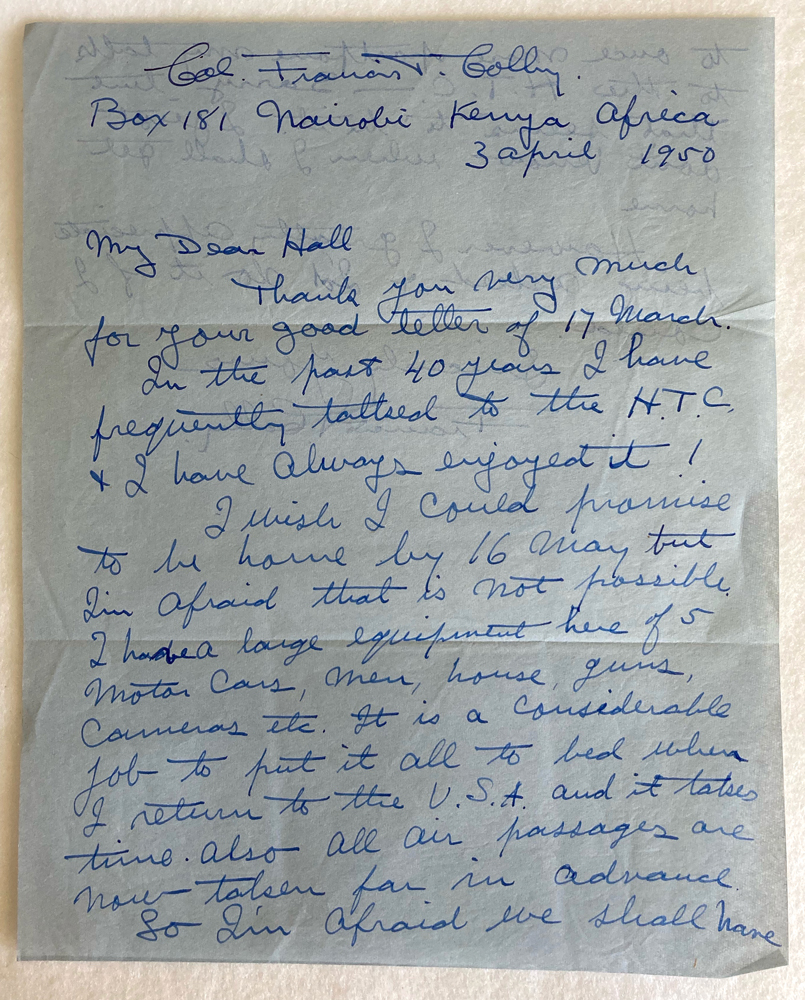 Col. Francis T. Colby.
Box 181 Nairobi Kenya Africa
3 april 1950
My Dear Hall
Thank you very much
for your good letter of 17 March.
In the past 40 years I have
frequently talked to the H.T.C.
& I have always enjoyed it !
I wish I could promise
to be home by 16 May but
I'm afraid that is not possible.
I have a large equipment here of 5
motor cars, men, house, guns,
cameras etc. It is a considerable
job to put it all to bed when
I return to the U.S.A. and it takes
time. also all air passages are
now taken far in advance.
So I'm afraid we shall have